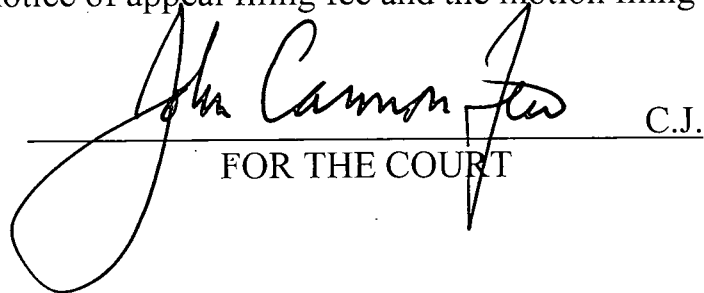 notice of appeal filing fee and the motion filing
John Cannon Few C.J.
FOR THE COURT